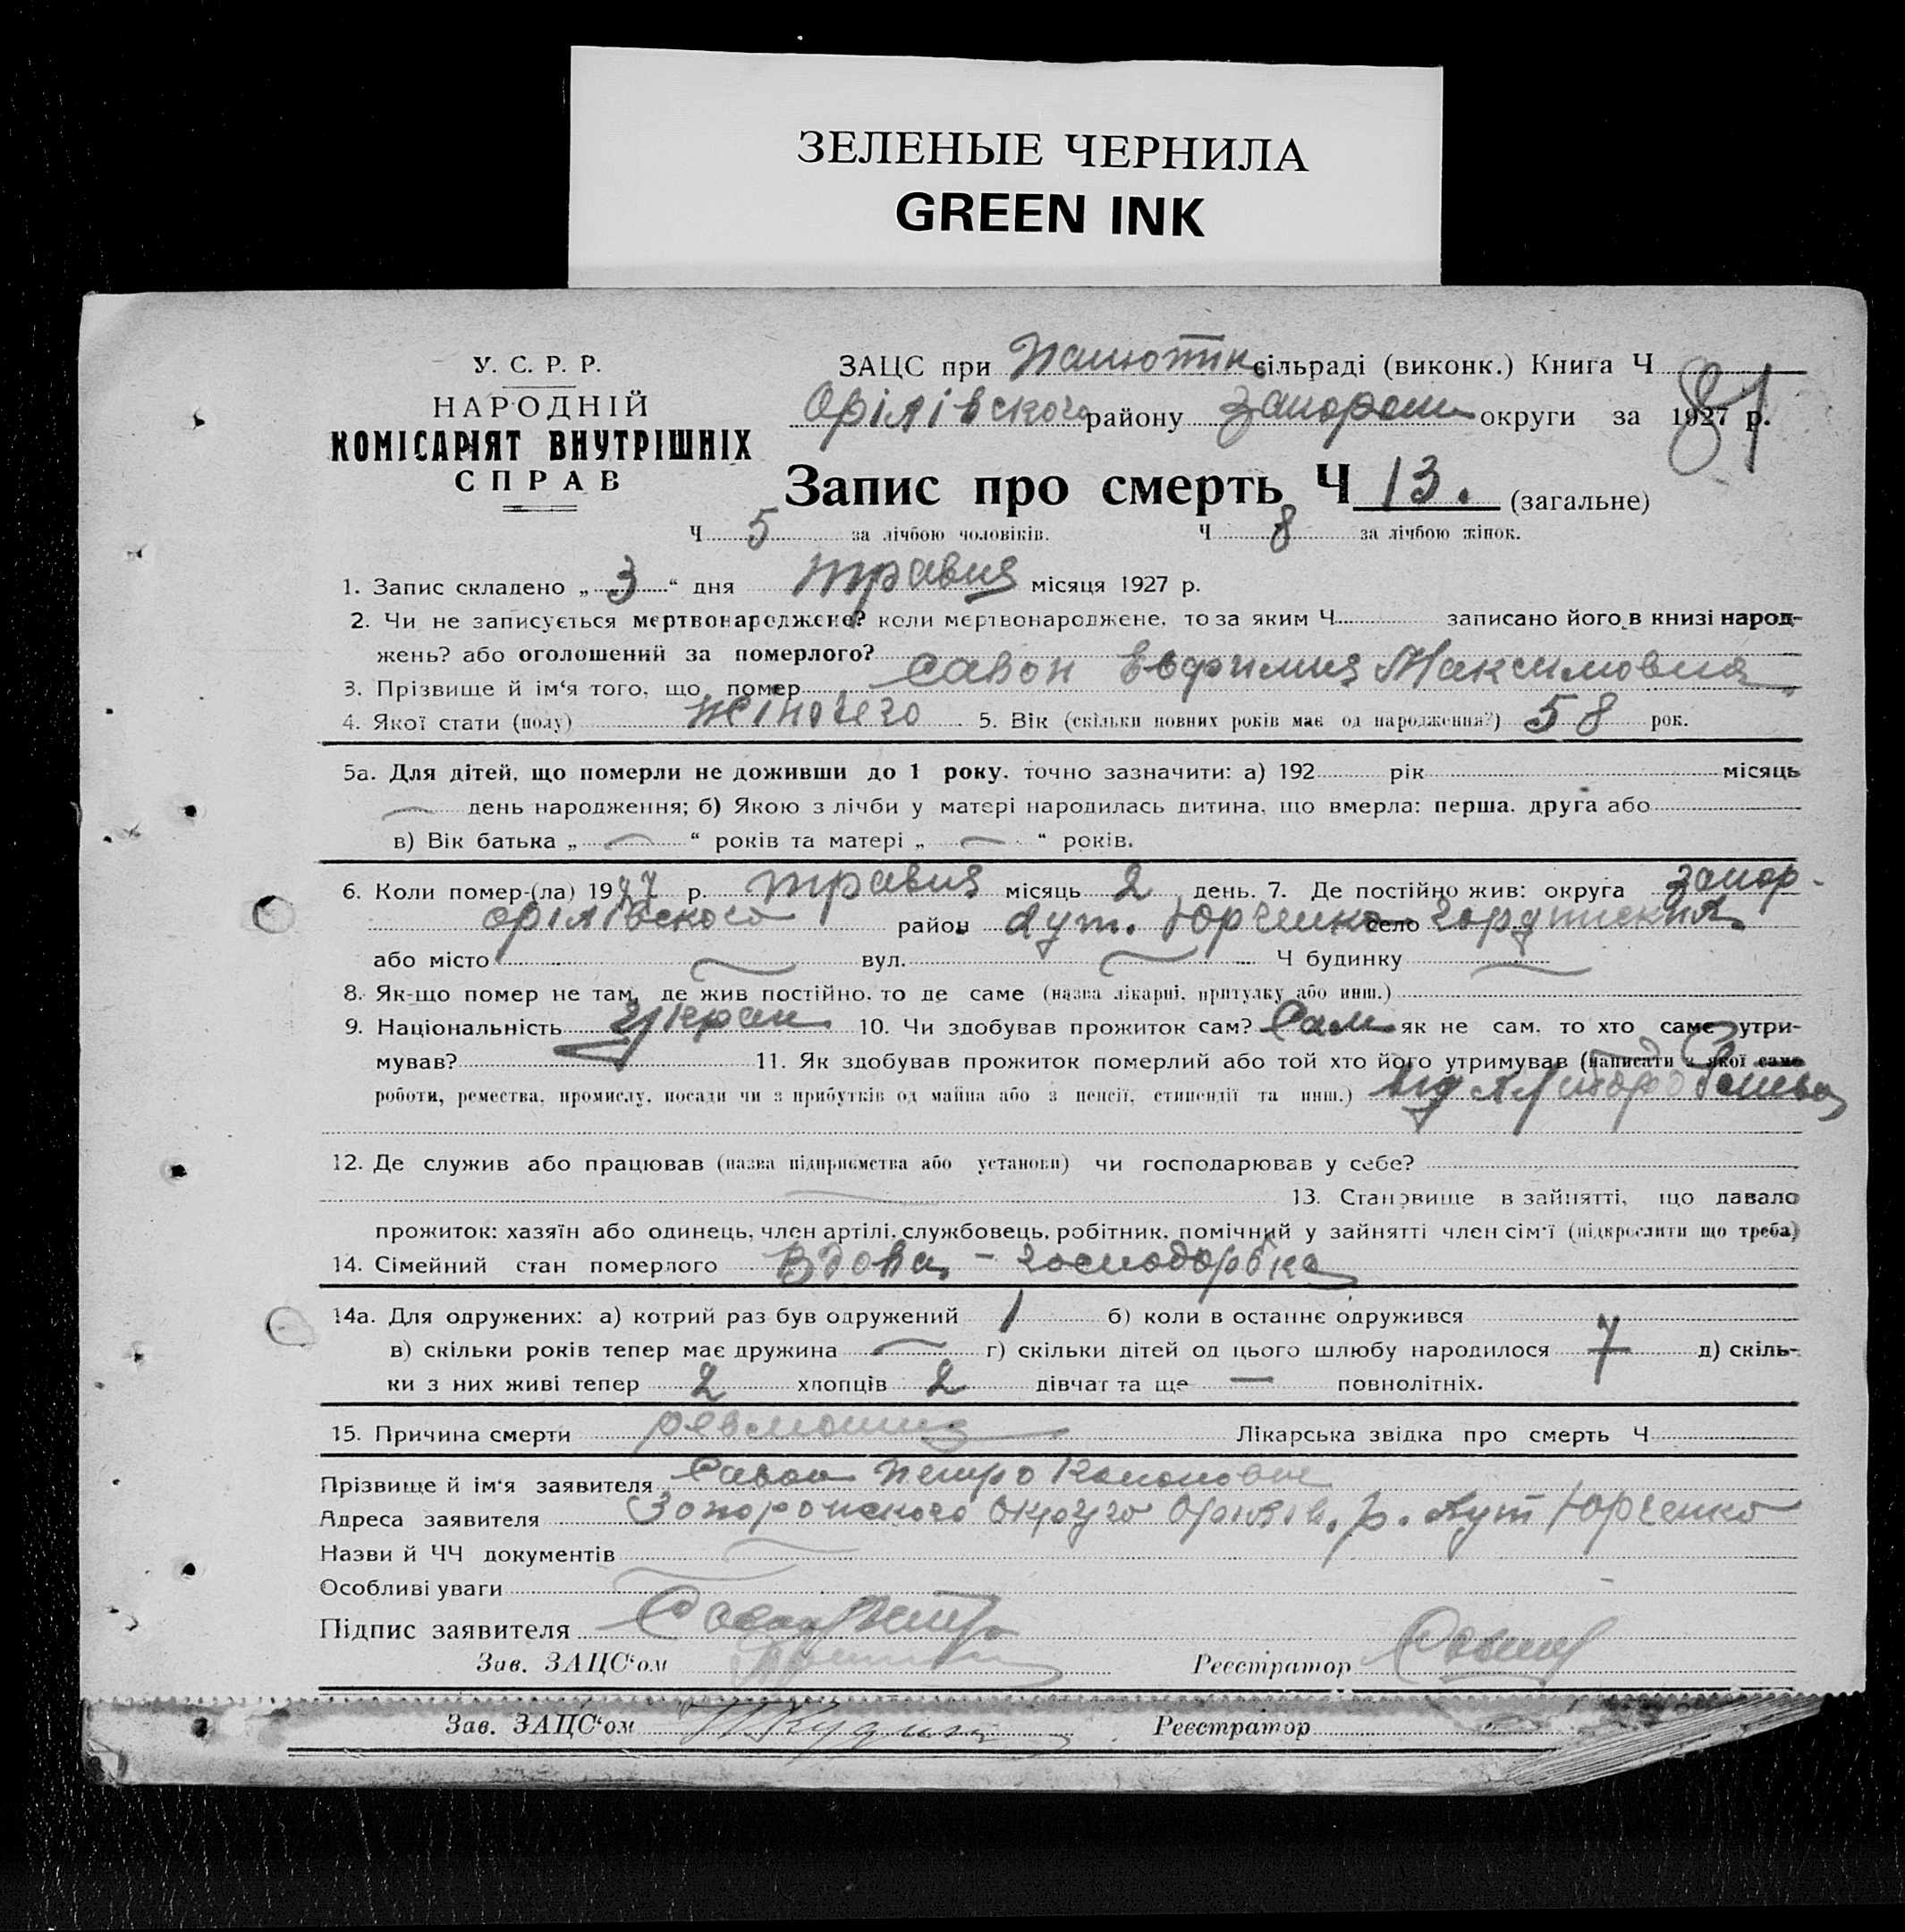 ЗЕЛЕНЫЕ ЧЕРНИЛА
GREEN INK
У. С. Р. Р.
НАРОДНІЙ
КОМІСАРІЯТ ВНУТРІШНІХ
СПРАВ
ЗАЦС при Панютин сільраді (виконк.) Книга Ч
81
Орілівского району Запорож округи за 1927 р.
Запис про смерть Ч 13. (загальне)
Ч 5 за лічбою чоловіків. Ч 8 за лічбою жінок.
1. Запис складено „ 3 “ дня травня місяця 1927 р.
2. Чи не записується мертвонароджене? коли мертвонароджене, то за яким Ч записано його в книзі народ-
жень? або оголошений за померлого?
3. Прізвище й ім‘я того, що помер Савон Евфримия Максимовна
4. Якої стати (полу) жіночего 5. Вік (скільки повних років має од народження?) 58 рок.
5а. Для дітей, що померли не доживши до 1 року, точно зазначити: а) 192 рік місяць
день народження; б) Якою з лічби у матері народилась дитина, що вмерла: перша, друга або
в) Вік батька „ “ років та матері „ “ років.
6. Коли помер-(ла) 1927 р. травня місяць 2 день. 7. Де постійно жив: округа Запор-
орілівского район хут. Юрченко село
або місто вул. Ч будинку
8. Як-що помер не там, де жив постійно, то де саме (назва лікарні, притулку або инш.)
9. Національність Украин 10. Чи здобував прожиток сам? Сам як не сам, то хто саме утри-
мував? 11. Як здобував прожиток померлий або той хто його утримував (написати з якої саме
роботи, ремества, промислу, посади чи з прибутків од майна або з пенсії, стипендії та инш.) від
12. Де служив або працював (назва підприємства або установи) чи господарював у себе?
13. Становище в зайнятті, що давало
прожиток: хазяїн або одинець, член артілі, службовець, робітник, помічний у зайнятті член сім‘ї (підкреслити що треба)
14. Сімейний стан померлого Вдова -
14а. Для одружених: а) котрий раз був одружений 1 б) коли в останнє одружився
в) скільки років тепер має дружина — г) скільки дітей од цього шлюбу народилося 7 д) скіль-
ки з них живі тепер 2 хлопців 2 дівчат та ще — повнолітніх.
15. Причина смерти ревматизз Лікарська звідка про смерть Ч
Прізвище й ім‘я заявителя Савон Петро Кононович
Адреса заявителя Запорожского Округо р. хут Юрченко
Назви й ЧЧ документів
Особливі уваги
Підпис заявителя Савон Петро
Зав. ЗАЦС‘ом Реєстратор
Зав. ЗАЦС‘ом Реєстратор